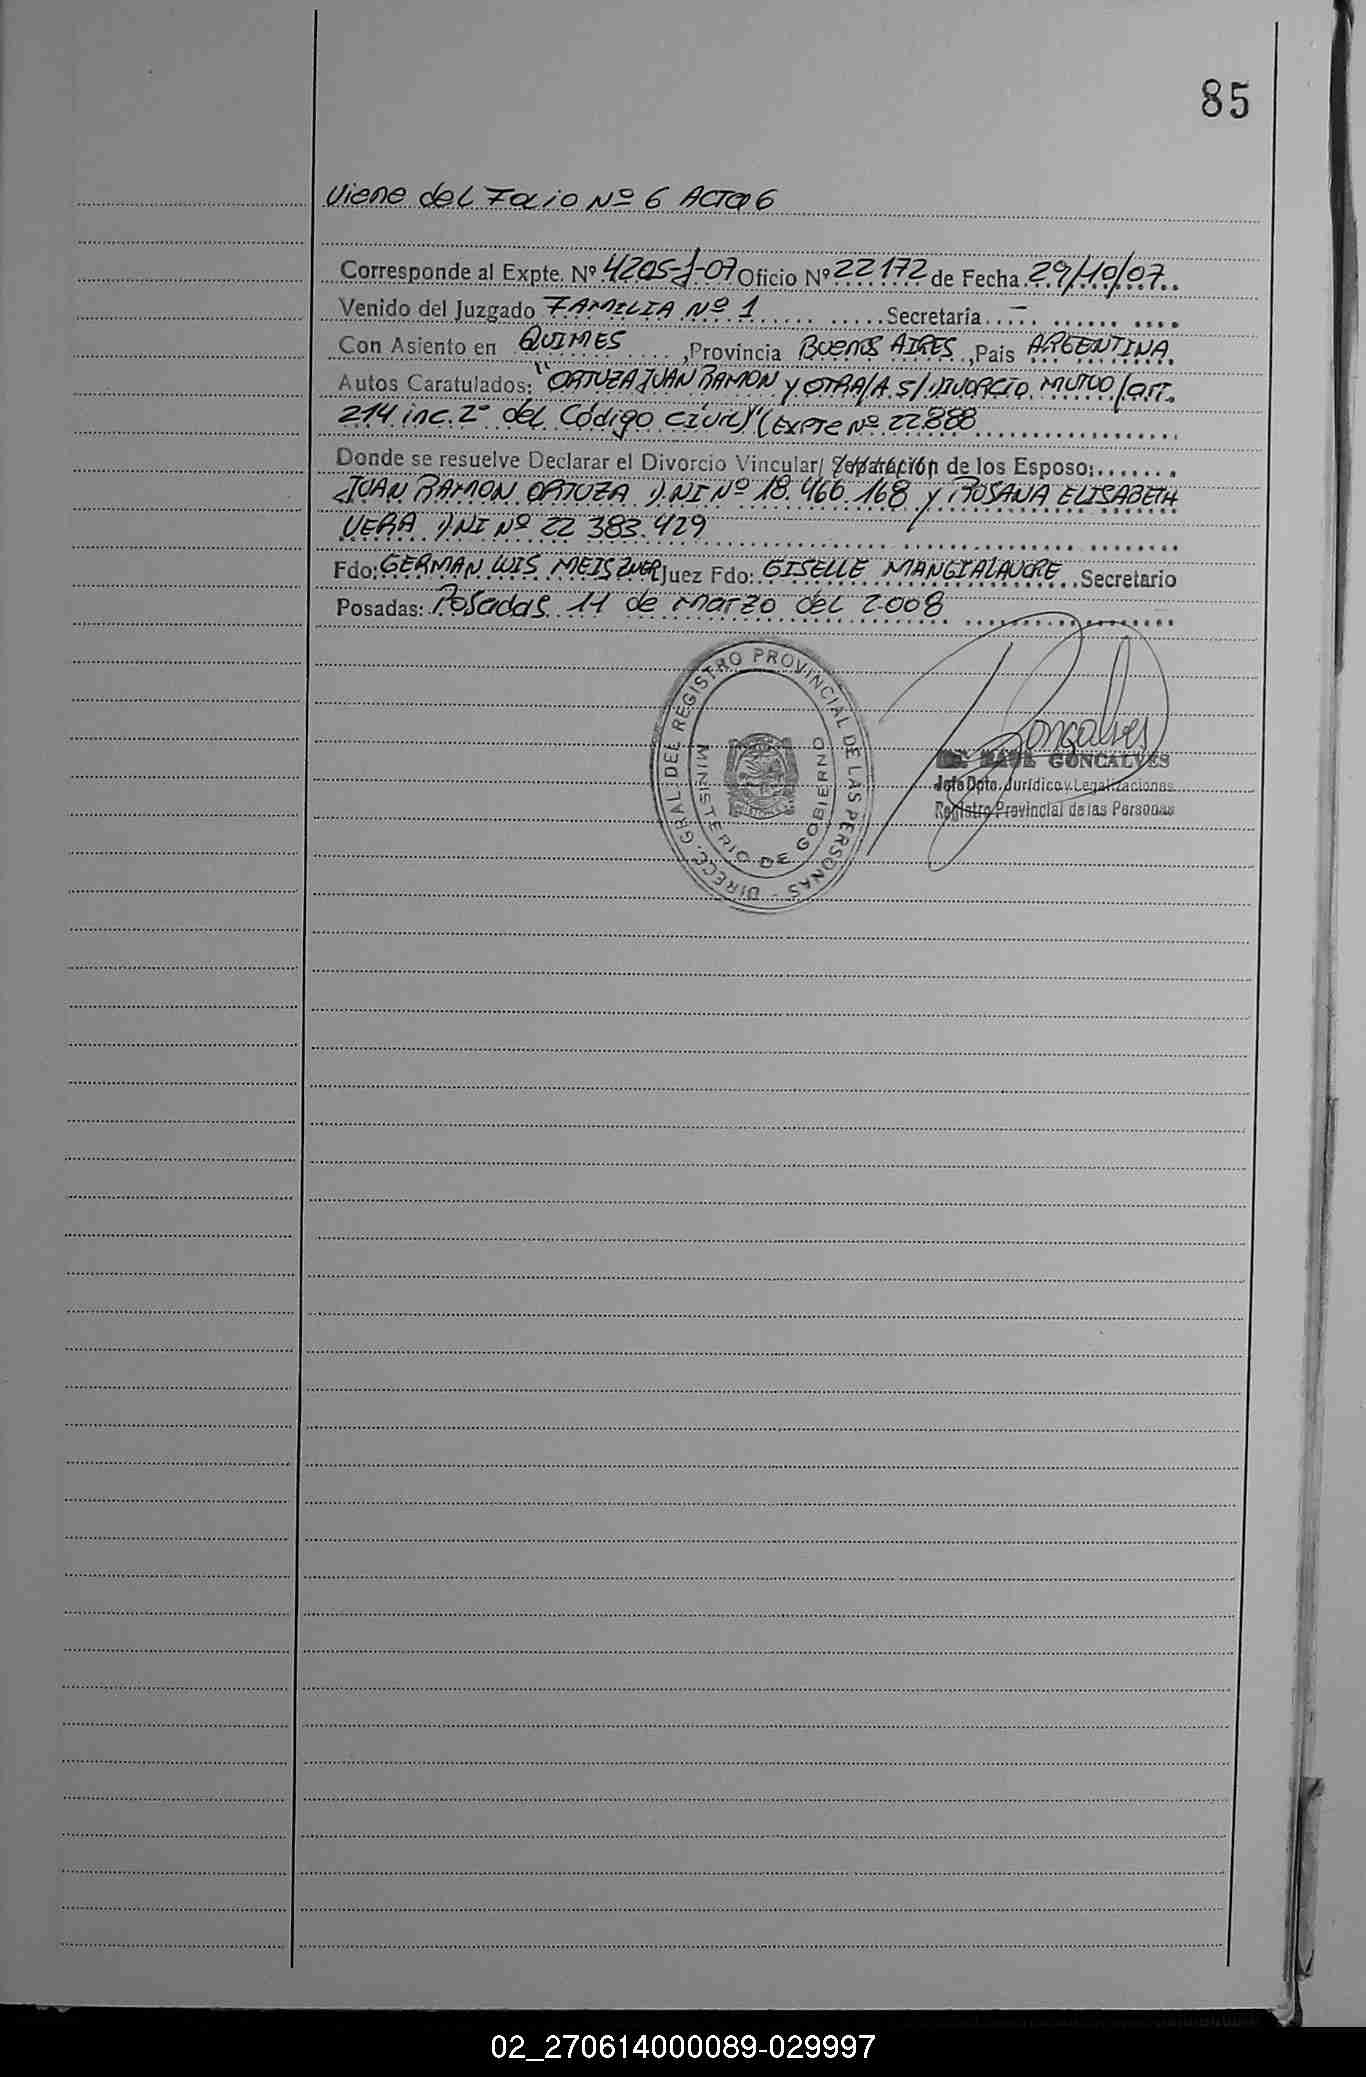 85
Viene del Folio Nº 6 Acta 6
Corresponde al Expte. Nº 4205-J-07 Oficio Nº 22172 de Fecha 29/10/07
Venido del Juzgado FAMILIA Nº 1 Secretaría -
Con Asiento en QUIMES, Provincia BUENOS AIRES, Pais ARGENTINA
Autos Caratulados: "ORTUZA JUAN RAMON y OTRA/A S/ DIVORCIO MUTUO (art.
214 inc. 2º del Código Civil)" (EXPTE Nº 22888
Donde se resuelve Declarar el Divorcio Vincular/ Separación de los Esposo:
JUAN RAMON ORTUZA D.NI Nº 18.466.168 y ROSANA ELISABETH
VERA D.NI Nº 22 383.429
Fdo: GERMAN LUIS MEISZNER Juez Fdo: GISELLE MANGIALAVORE Secretario
Posadas: Posadas 11 de marzo del 2008
Gonçalves
DR. RAUL GONCALVES
Jefe Dpto. Jurídico y Legalizaciones
Registro Provincial de las Personas
DIRECC. GRAL. DEL REGISTRO PROVINCIAL DE LAS PERSONAS -
MINISTERIO DE GOBIERNO
02_270614000089-029997